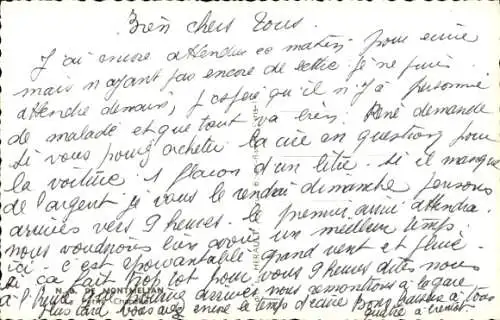 Bien chers tous.
J'ai encore attendu ce matin pour écrire
mais n'ayant pas encore de lettre je ne puis
attendre demain, j'espère qu'il n'y a personne
de malade et que tout va bien. René demande
si vous pouvez acheter la cire en question pour
la voiture. 1 flacon d'un litre. Si il manque
de l'argent je vous le rendrai dimanche. pensons
arriver vers 9 heures. le premier arrivé attendra.
nous voudrions bien avoir un meilleur temps.
ici. c'est épouvantable grand vent et pluie.
si ça fait trop tot pour vous 9 heures dites nous
à l' arriver nous remontrons à la gare
plus tard vous avez encore le temps d'écrire Bons baisers à tous
N. D. DE MONTMELIAN
HIRAULT